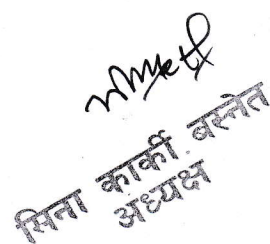 सिना कार्की बस्नेत
अध्यक्ष